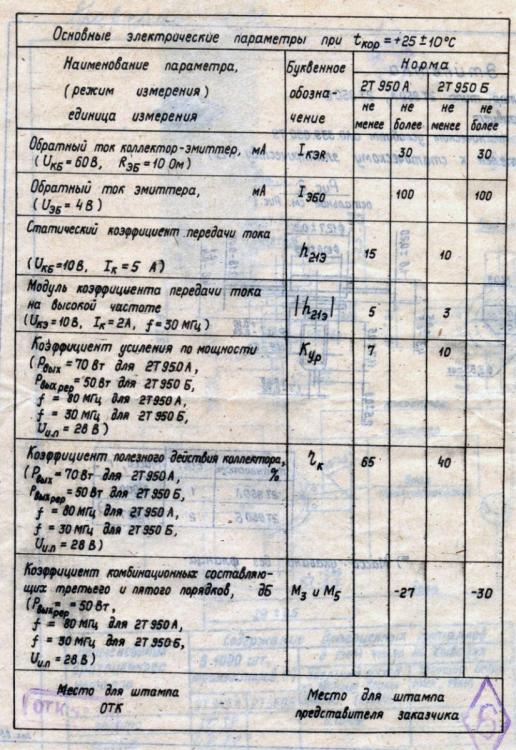 Основные электрические параметры при tкор = +25 ± 10°С
Наименование параметра,
(режим измерения)
единица измерения
Буквенное
обозна-
чение
Норма
2Т 950 А
2Т 950 Б
не менее
не более
не менее
не более
Обратный ток коллектор-эмиттер, мА
(UКБ = 60 В, RЭБ = 10 Ом)
IКЭR
30
30
Обратный ток эмиттера, мА
(UЭБ = 4 В)
IЭБО
100
100
Статический коэффициент передачи тока
(UКБ = 10 В, IК = 5 А)
h21Э
15
10
Модуль коэффициента передачи тока
на высокой частоте
(UКЭ = 10 В, IК = 2А, f = 30 МГц)
|h21Э|
5
3
Коэффициент усиления по мощности
(Рвых = 70 Вт для 2Т950А,
Рвых рер = 50 Вт для 2Т 950 Б,
f = 80 МГц для 2Т950А,
f = 30 МГц для 2Т 950 Б,
Uи.п = 28 В)
Кур
7
10
Коэффициент полезного действия коллектора, %
(Рвых = 70 Вт для 2Т 950 А,
Рвых рер = 50 Вт для 2Т 950 Б,
f = 80 МГц для 2Т 950 А,
f = 30 МГц для 2Т 950 Б,
Uи.п = 28 В)
ηк
65
40
Коэффициент комбинационных составляю-
щих третьего и пятого порядков, дБ
(Рвых рер = 50 Вт,
f = 80 МГц для 2Т 950А,
f = 30 МГц для 2Т 950 Б,
Uи.п = 28 В)
М3 и М5
-27
-30
Место для штампа
ОТК
Место для штампа
представителя заказчика
ОТК